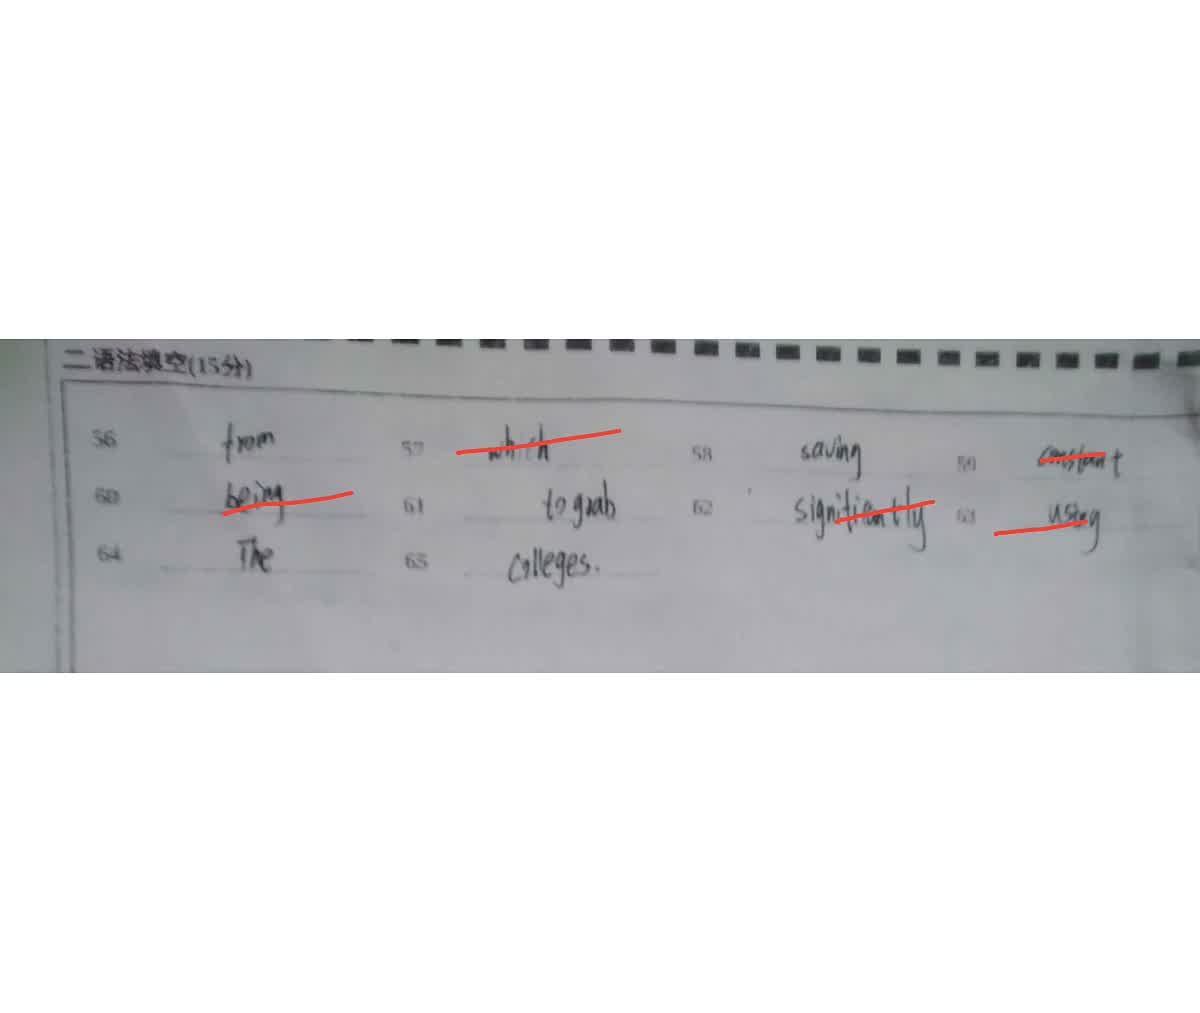 二 语法填空(15分)
56 from 57 which 58 saving 59 constant
60 being 61 to grab 62 signifiantly 63 using
64 The 65 colleges.